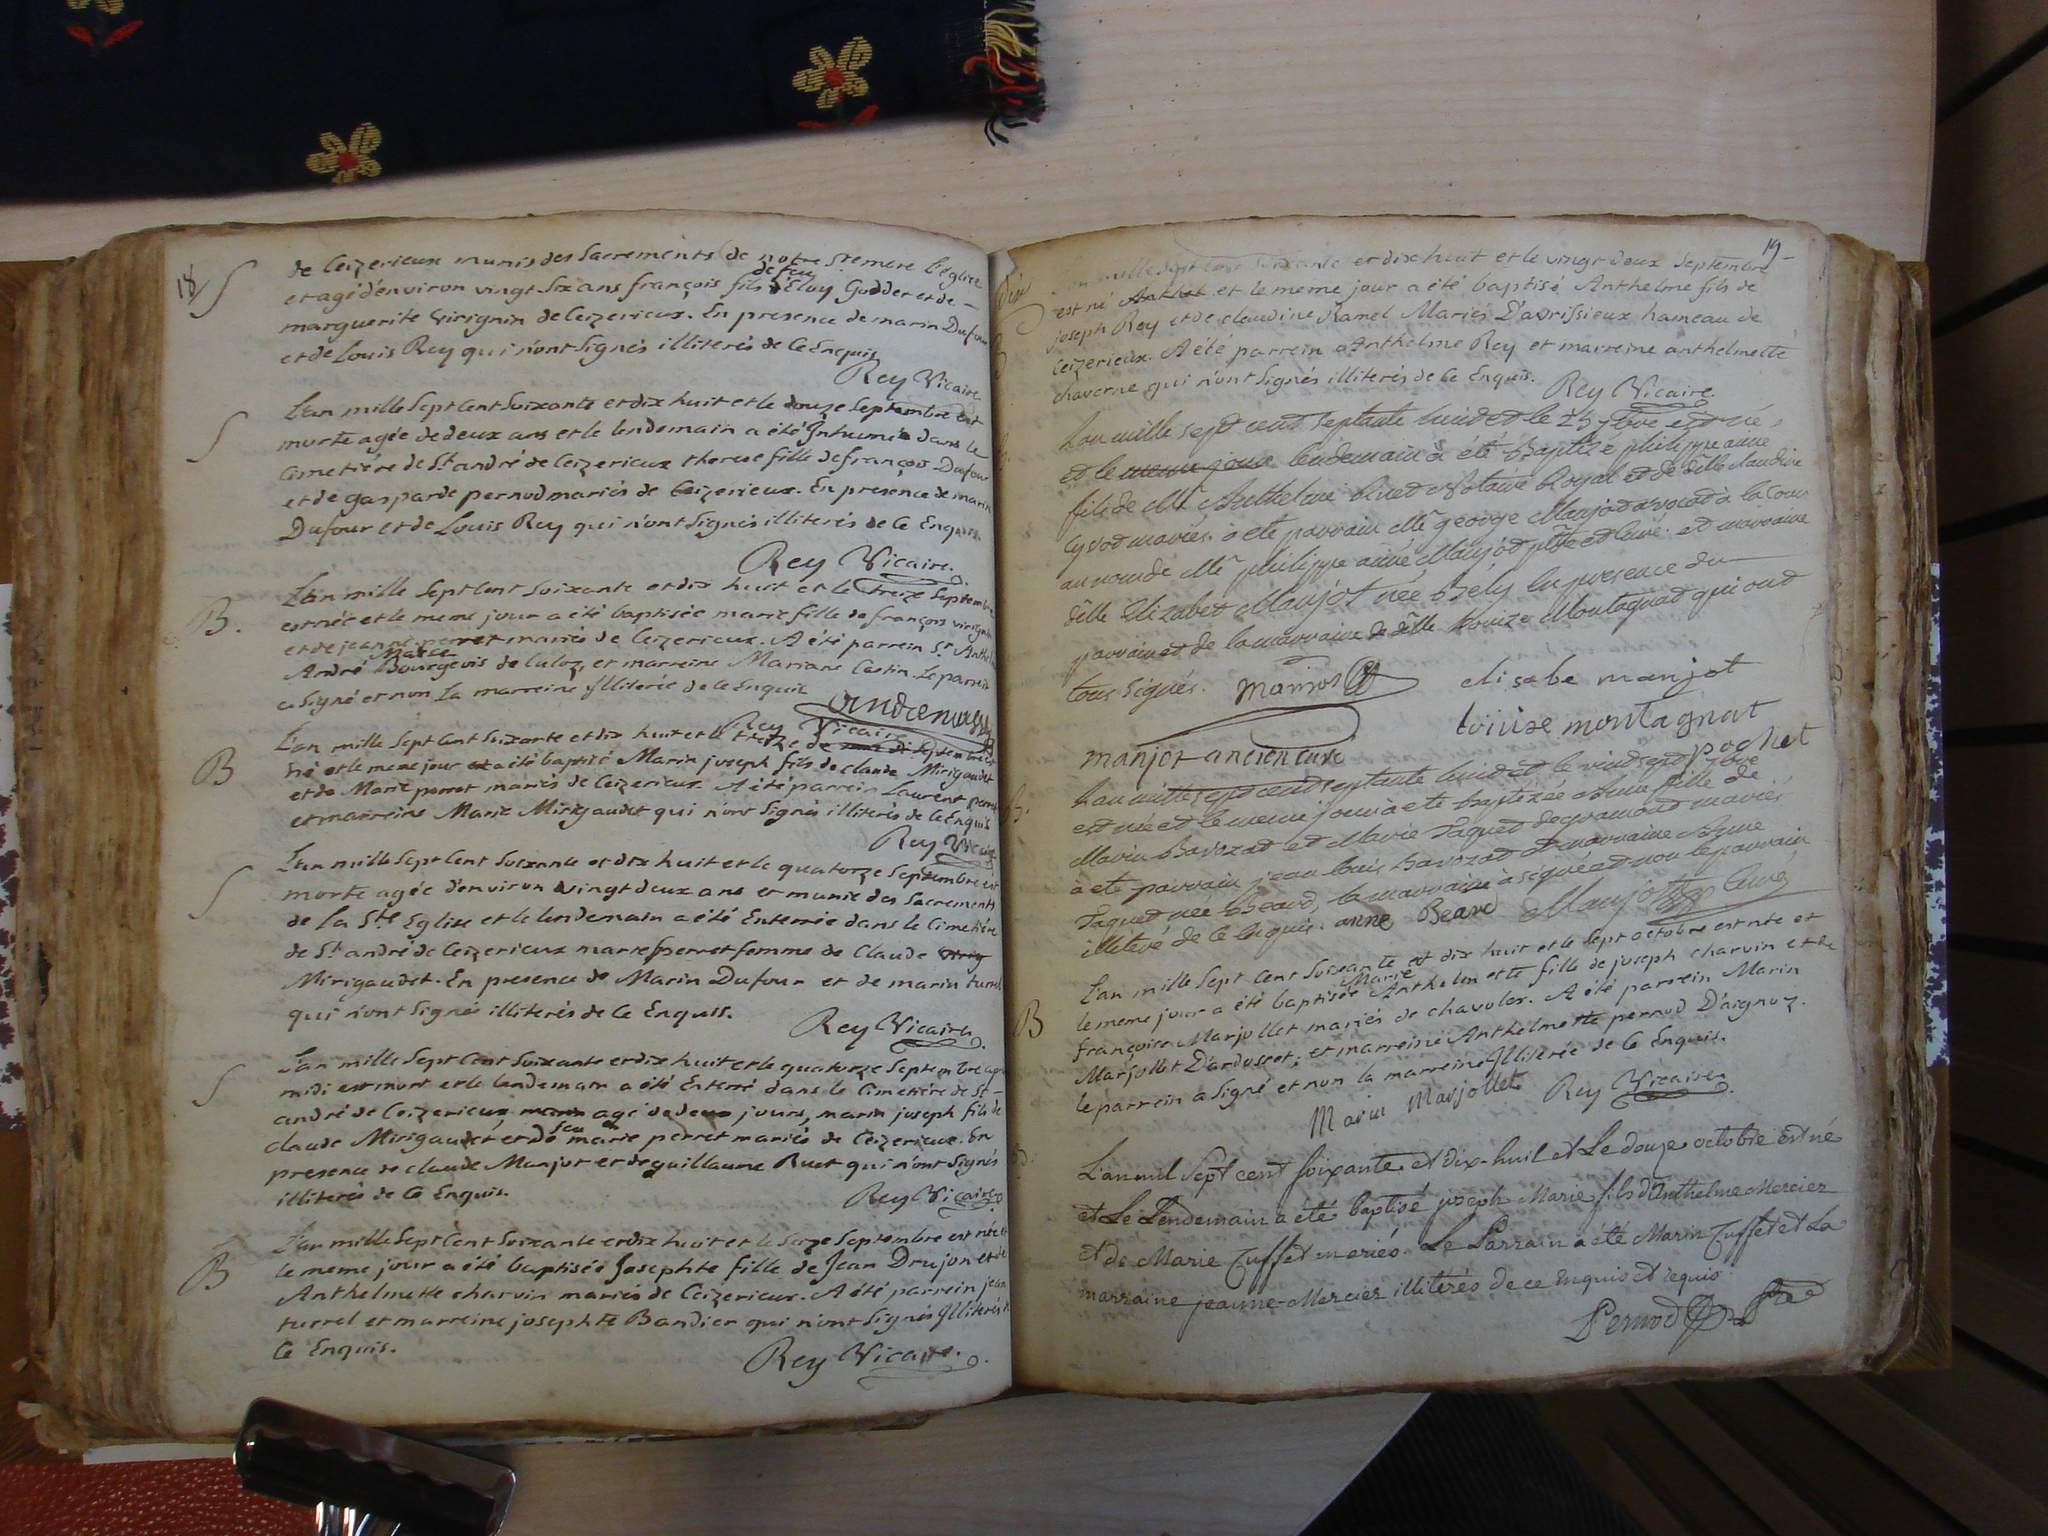 18
S
de Ceizerieux munis des Sacrements de notre Ste mere l'église
et agé d'environ vingt Six ans françois fils de feu Eloy Godder et de
marguerite virignin de Ceizerieux. En presence de marin Dufour
et de Louis Rey qui n'ont Signés illiterés de Ce Enquis
Rey Vicaire
S
L'an mille Sept Cent Soixante et dix huit et le douze Septembre est
morte agée de deux ans et le lendemain a été Inhumée dans le
Cimetiére de St andré de Ceizerieux therese fille de françois Dufour
et de gasparde pernod mariés de Ceizerieux. En presence de marin
Dufour et de Louis Rey qui n'ont Signés illiterés de Ce Enquis.
Rey Vicaire.
B.
L'an mille Sept Cent Soixante et dix huit et le treize Septembre
est née et le meme jour a été baptisée marie fille de françois virignin
et de jeanne perret mariés de Ceizerieux. A été parrein Sr Anthel
André Bourgeois de Culoz, et marreine Mariane Castin. Le parrein
a Signé et non La marreine Illiterée de Ce Enquis
Rey Vicaire
B
L'an mille Sept Cent Soixante et dix huit et le treize de Septembre est
né et le meme jour a été baptisé Marin joseph fils de claude Mirigaudet
et de Marie perret mariés de Ceizerieux. A été parrein Laurent perret
et marreine Marie Mirigaudet qui n'ont Signés illiterés de Ce Enquis
Rey Vicaire
S
L'an mille Sept Cent Soixante et dix huit et le quatorze Septembre est
morte agée d'environ vingt deux ans et munie des Sacrements
de La Ste Eglise et le lendemain a été Enterrée dans le Cimetiére
de St andré de Ceizerieux marie perret femme de Claude
Mirigaudet. En presence de Marin Dufour et de marin turrel
qui n'ont Signés illiterés de Ce Enquis.
Rey Vicaire.
S
L'an mille Sept Cent Soixante et dix huit et le quatorze Septembre apr
midi est mort et le lendemain a été Enterré dans le Cimetiére de St
andré de Ceizerieux agé de deux jours, marin joseph fils de
claude Mirigaudet et de feu marie perret mariés de Ceizerieux. En
presence de claude Manjot et de guillaume Ruet qui n'ont Signés
illiterés de Ce Enquis.
Rey Vicaire
B
L'an mille Sept Cent Soixante et dix huit et le Seize Septembre est née et
le meme jour a été baptisée Josephte fille de Jean Drujon et de
Anthelmette charvin mariés de Ceizerieux. A été parrein jean
turrel et marreine josephte Bandier qui n'ont Signés Illiterés de
Ce Enquis.
Rey Vicaire.
19
mille Sept Cent Soixante et dix huit et le vingt deux Septembre
est né et le meme jour a été baptisé Anthelme fils de
joseph Rey et de claudine Ramel Mariés D'avrissieux hameau de
Ceizerieux. A été parrein Anthelme Rey et marreine anthelmette
chaverne qui n'ont Signés illiterés de Ce Enquis.
Rey Vicaire.
L'an mille sept cent septante huid et le 25 7bre est né
et le meme jour lendemain à été baptizé philippe anne
fils de Mr Anthelme Rued Notaire Royal et de dlle Claudine
mariés. à été parrain Mr george Manjod avocad à la Cour
au nom de Mr philippe anné Manjod ptre et Curé. et marraine
dlle Elizabet Manjot née Bély En presence du
parrain et de la marraine de dlle Louize Montagnad qui ont
tous signés. manjot
elisabe manjot
louise montagnat
manjot ancien curé
pochet
B.
L'an mille sept cend septante huid et le vind sept 7bre
est née et le meme jour à été baptizée Anne fille de
Marin Bavozad et Marie Paqued de gramond mariés
à été parrain jean louis Bavozad et marraine Anne
Paqued née Beard, la marraine à signé et non le parrain
illiteré de Ce Enquis. anne Beard Manjot Curé
B
L'an mille Sept Cent Soixante et dix huit et le Sept octobre est née et
le meme jour a été baptisée Marie Anthelmette fille de joseph charvin et de
françoise Marjollet mariés de chavolex. A été parrein Marin
Marjollet D'ardosset; et marreine Anthelmette pernod D'aignoz.
le parrein a Signé et non la marreine Illiterée de Ce Enquis.
Marin Marjollet Rey Vicaire
L'an mil Sept cent soixante et dix-huit et Le douze octobre est né
et Le Lendemain a été baptisé joseph Marie fils d'Anthelme Mercier
et de Marie Tuffet mariés. Le Parrain a été Marin Tuffet et La
marraine jeanne Mercier illiterés de ce Enquis et requis.
Pernod